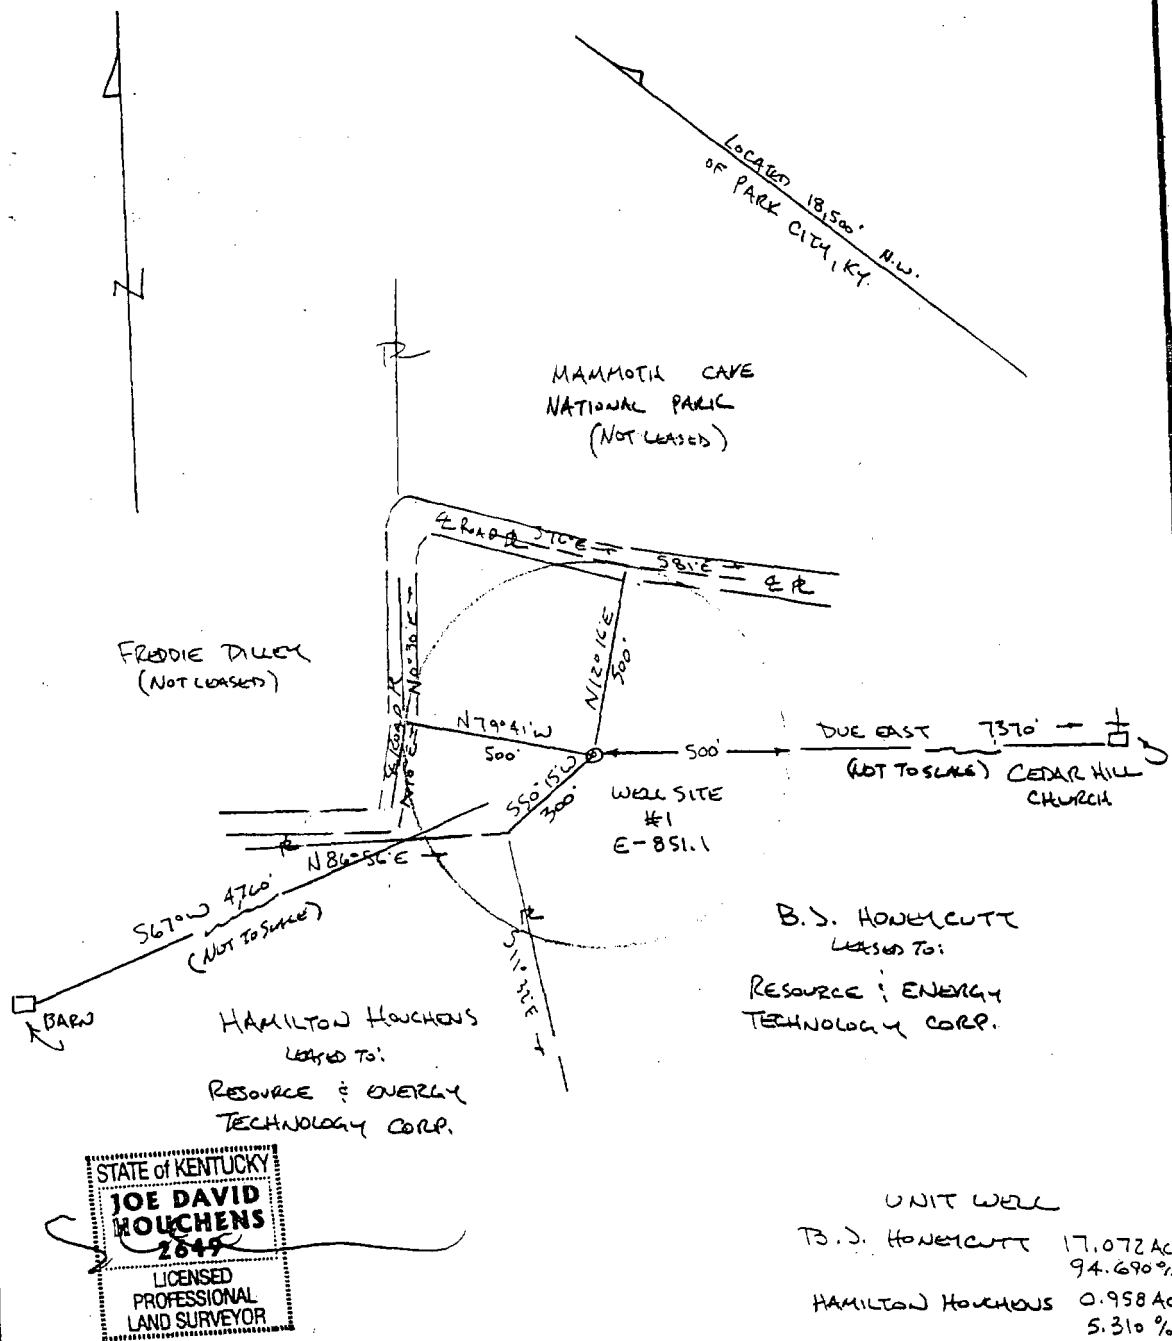 N
LOCATED 18,500' N.W.
OF PARK CITY, KY.
PL
MAMMOTH CAVE
NATIONAL PARK
(NOT LEASED)
℄ ROAD PL S76°E
S81°E
℄ PL
FREDDIE DILLEY
(NOT LEASED)
N0°30'E
N12°16'E
500'
℄ ROAD PL
N79°41'W
500'
500'
DUE EAST 7370'
(NOT TO SCALE)
CEDAR HILL
CHURCH
S50°15'W
300'
WELL SITE
#1
E-851.1
PL
N86°56'E
S67°W 4760'
(NOT TO SCALE)
BARN
PL
S11°32'E
B.J. HONEYCUTT
LEASED TO:
RESOURCE & ENERGY
TECHNOLOGY CORP.
HAMILTON HOUCHENS
LEASED TO:
RESOURCE & ENERGY
TECHNOLOGY CORP.
STATE of KENTUCKY
JOE DAVID
HOUCHENS
2649
LICENSED
PROFESSIONAL
LAND SURVEYOR
UNIT WELL
B.J. HONEYCUTT 17.072 AC
94.690%
HAMILTON HOUCHENS 0.958 AC
5.310%